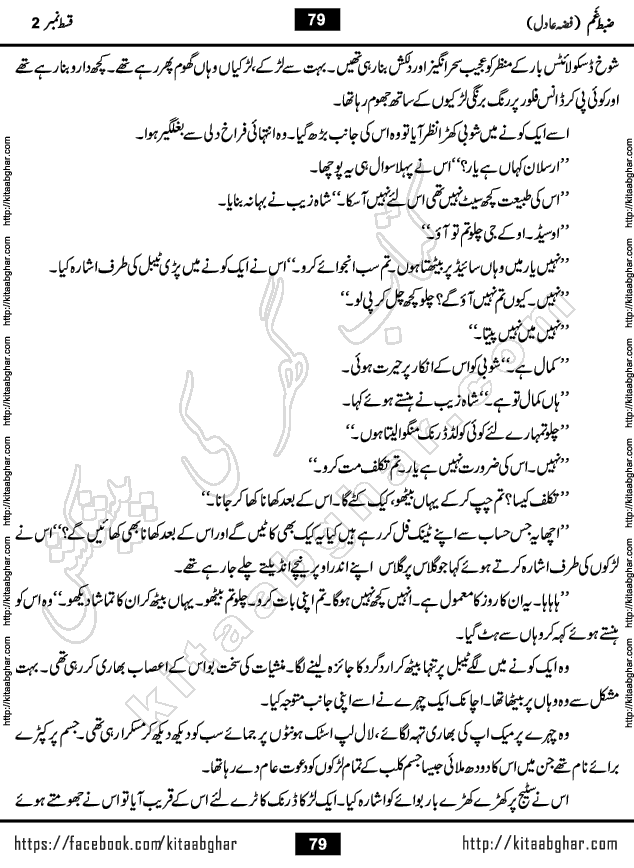 ضبطِ غم (فضہ عادل)
79
قسط نمبر 2
شوخ ڈسکو لائٹس بار کے منظر کو عجیب سحر انگیز اور دلکش بنا رہی تھیں۔ بہت سے لڑکے، لڑکیاں وہاں گھوم پھر رہے تھے۔ کچھ دارو بنا رہے تھے
اور کوئی پی کر ڈانس فلور پر رنگ برنگی لڑکیوں کے ساتھ جھوم رہا تھا۔
اسے ایک کونے میں شوبی کھڑا نظر آیا تو وہ اس کی جانب بڑھ گیا۔ وہ انتہائی فراخ دلی سے بغلگیر ہوا۔
’’ارسلان کہاں ہے یار؟‘‘ اس نے پہلا سوال ہی یہ پوچھا۔
’’اس کی طبیعت کچھ سیٹ نہیں تھی اس لئے نہیں آ سکا۔‘‘ شاہ زیب نے بہانہ بنایا۔
’’او سیڈ۔ او کے جی چلو تم تو آؤ۔‘‘
’’نہیں یار میں وہاں سائیڈ پر بیٹھتا ہوں۔ تم سب انجوائے کرو۔‘‘ اس نے ایک کونے میں پڑی ٹیبل کی طرف اشارہ کیا۔
’’نہیں۔ کیوں تم نہیں آؤ گے؟ چلو کچھ چل کر پی لو۔‘‘
’’نہیں میں نہیں پیتا۔‘‘
’’کمال ہے۔‘‘ شوبی کو اس کے انکار پر حیرت ہوئی۔
’’ہاں کمال تو ہے۔‘‘ شاہ زیب نے ہنستے ہوئے کہا۔
’’چلو تمہارے لئے کوئی کولڈ ڈرنک منگوا لیتا ہوں۔‘‘
’’نہیں۔ اس کی ضرورت نہیں ہے یار۔ تم تکلف مت کرو۔‘‘
’’تکلف کیسا؟ تم چپ کر کے یہاں بیٹھو، کیک کٹے گا۔ اس کے بعد کھانا کھا کر جانا۔‘‘
’’اچھا یہ جس حساب سے اپنے ٹینک فل کر رہے ہیں کیا یہ کیک بھی کاٹیں گے اور اس کے بعد کھانا بھی کھائیں گے؟‘‘ اس نے
لڑکوں کی طرف اشارہ کرتے ہوئے کہا جو گلاس پر گلاس اپنے اندر اوپر نیچے انڈیلتے چلے جا رہے تھے۔
’’ہاہاہا۔ یہ ان کا روز کا معمول ہے۔ انہیں کچھ نہیں ہو گا۔ تم اپنی بات کرو۔ چلو تم بیٹھو۔ یہاں بیٹھ کر ان کا تماشا دیکھو۔‘‘ وہ اس کو
ہنستے ہوئے کہہ کر وہاں سے ہٹ گیا۔
وہ ایک کونے میں لگے ٹیبل پر تنہا بیٹھ کر اردگرد کا جائزہ لینے لگا۔ منشیات کی سخت بو اس کے اعصاب بھاری کر رہی تھی۔ بہت
مشکل سے وہ وہاں پر بیٹھا تھا۔ اچانک ایک چہرے نے اسے اپنی جانب متوجہ کیا۔
وہ چہرے پر میک اپ کی بھاری تہہ لگائے، لال لپ اسٹک ہونٹوں پر جمائے سب کو دیکھ دیکھ کر مسکرا رہی تھی۔ جسم پر کپڑے
برائے نام تھے جن میں اس کا دودھ ملائی جیسا جسم کلب کے تمام لڑکوں کو دعوت عام دے رہا تھا۔
اس نے سٹیج پر کھڑے کھڑے بار بوائے کو اشارہ کیا۔ ایک لڑکا ڈرنک کا ٹرے لئے اس کے قریب آیا تو اس نے جھومتے ہوئے
http://kitaabghar.com http://kitaabghar.com http://kitaabghar.com http://kitaabghar.com http://kitaabghar.com http://kitaabghar.com
http://kitaabghar.com http://kitaabghar.com http://kitaabghar.com http://kitaabghar.com http://kitaabghar.com http://kitaabghar.com
کتاب گھر کی پیشکش
kitaabghar.com
https://facebook.com/kitaabghar
79
http://kitaabghar.com